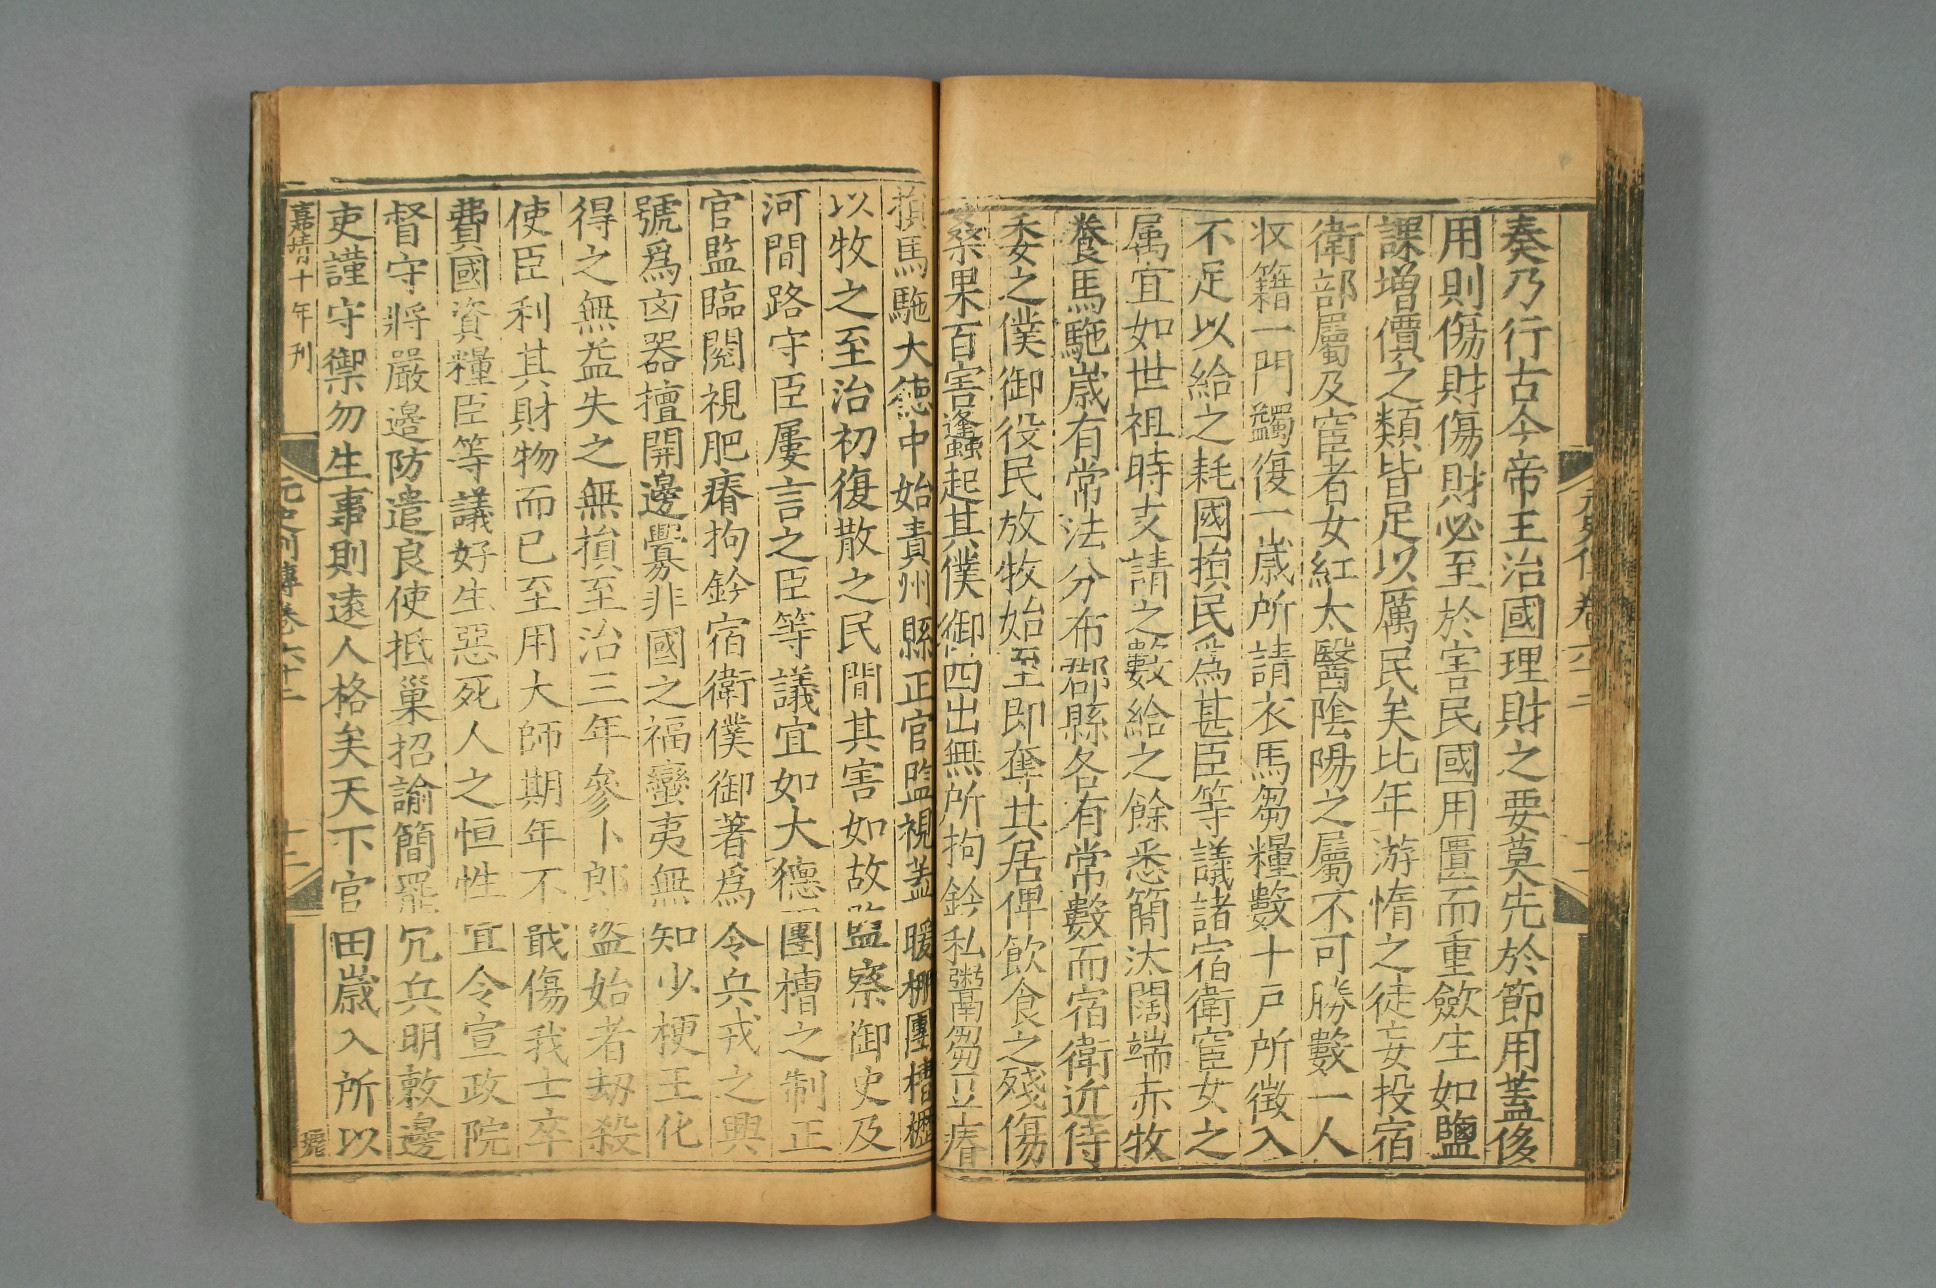 奏乃行古今帝王治國理財之要莫先於節用蓋侈
用則傷財傷財必至於害民國用匱而重斂生如鹽
課增價之類皆足以厲民矣比年游惰之徒妄投宿
衛部屬及宦者女紅太醫陰陽之屬不可勝數一人
收籍一門蠲復一歲所請衣馬芻糧數十戶所徵入
不足以給之耗國損民為甚臣等議諸宿衛宦女之
属宜如世祖時支請之數給之餘悉簡汰闊端赤牧
養馬駞歲有常法分布郡縣各有常數而宿衛近侍
委之僕御役民放牧始至即奪其居俾飲食之殘傷
桑果百害蜂起其僕御四出無所拘鈐私鬻芻豆瘠
損馬駞大德中始責州縣正官監視蓋暖棚團槽櫪
以牧之至治初復散之民間其害如故監察御史及
河間路守臣屢言之臣等議宜如大德團槽之制正
官監臨閱視肥瘠拘鈐宿衛僕御著爲令兵戎之興
號爲凶器擅開邊釁非國之福蠻夷無知少梗王化
得之無益失之無損至治三年參卜郎盜始者劫殺
使臣利其財物而已至用大師期年不戢傷我士卒
費國資糧臣等議好生惡死人之恒性宜令宣政院
督守將嚴邊防遣良使抵巢招諭簡罷冗兵明敕邊
吏謹守禦勿生事則遠人格矣天下官田歲入所以
嘉靖十年刊
元史列傳卷六十二
十二